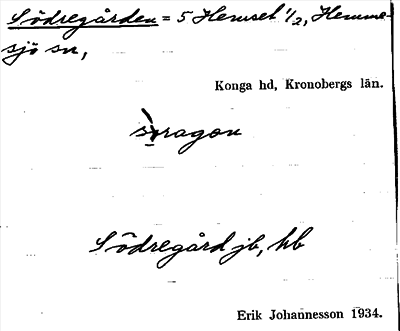 Södregården = 5 Hemset 1/2, Hemme-
sjö sn,
Konga hd, Kronobergs län.
Södregård jb, hb
Erik Johannesson 1934.